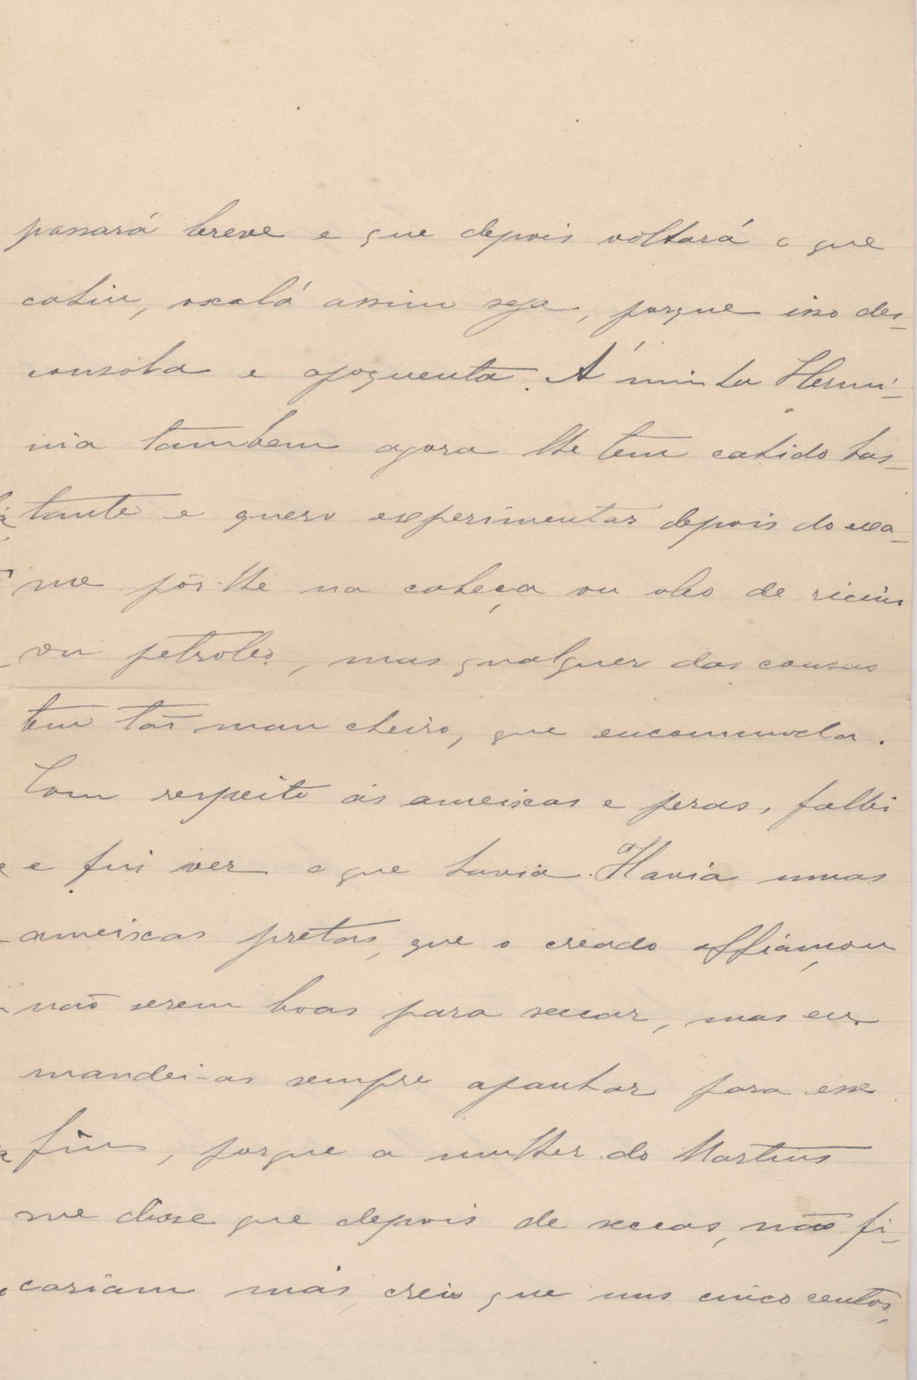 passará breve e que depois voltará o que
cahiu, oxalá assim seja, porque isso des-
consola e apoquenta. Á minha Hermi-
nia tambem agora lhe tem cahido bas-
tante e quero experimentar depois do exa-
me pôr-lhe na cabeça ou oleo de ricino
ou petroleo, mas qualquer das cousas
tem tão mau cheiro, que encommoda.
Com respeito ás ameixas e peras, fallei
e fui ver o que havia. Havia umas
ameixas pretas, que o creado affiançou
não serem boas para seccar, mas eu
mandei-as sempre apanhar para esse
fim, porque a mulher do Martins
me disse que depois de seccas, não fi-
cariam más, creio que uns cinco centos,